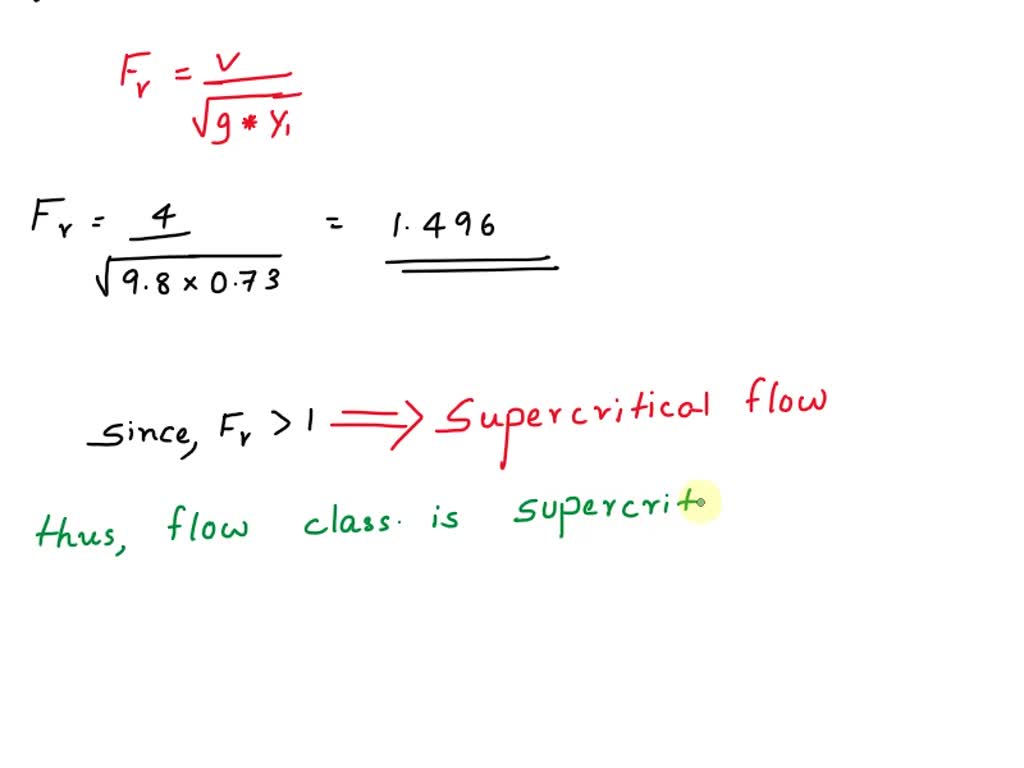 Fr = V / √g * y1
Fr = 4 / √9.8 × 0.73 = 1.496
since, Fr > 1 ⟹ Supercritical flow
thus, flow class. is supercrit